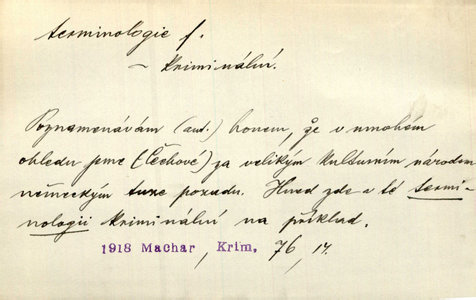 terminologie f.
~ kriminální.
Poznamenávám (aut.) honem, že v mnohém
ohledu jsme (Čechové) za velikým kulturním národem
německým tuze pozadu. Hned zde v té termi-
nologii kriminální na příklad.
1918 Machar, Krim, 76, 14.